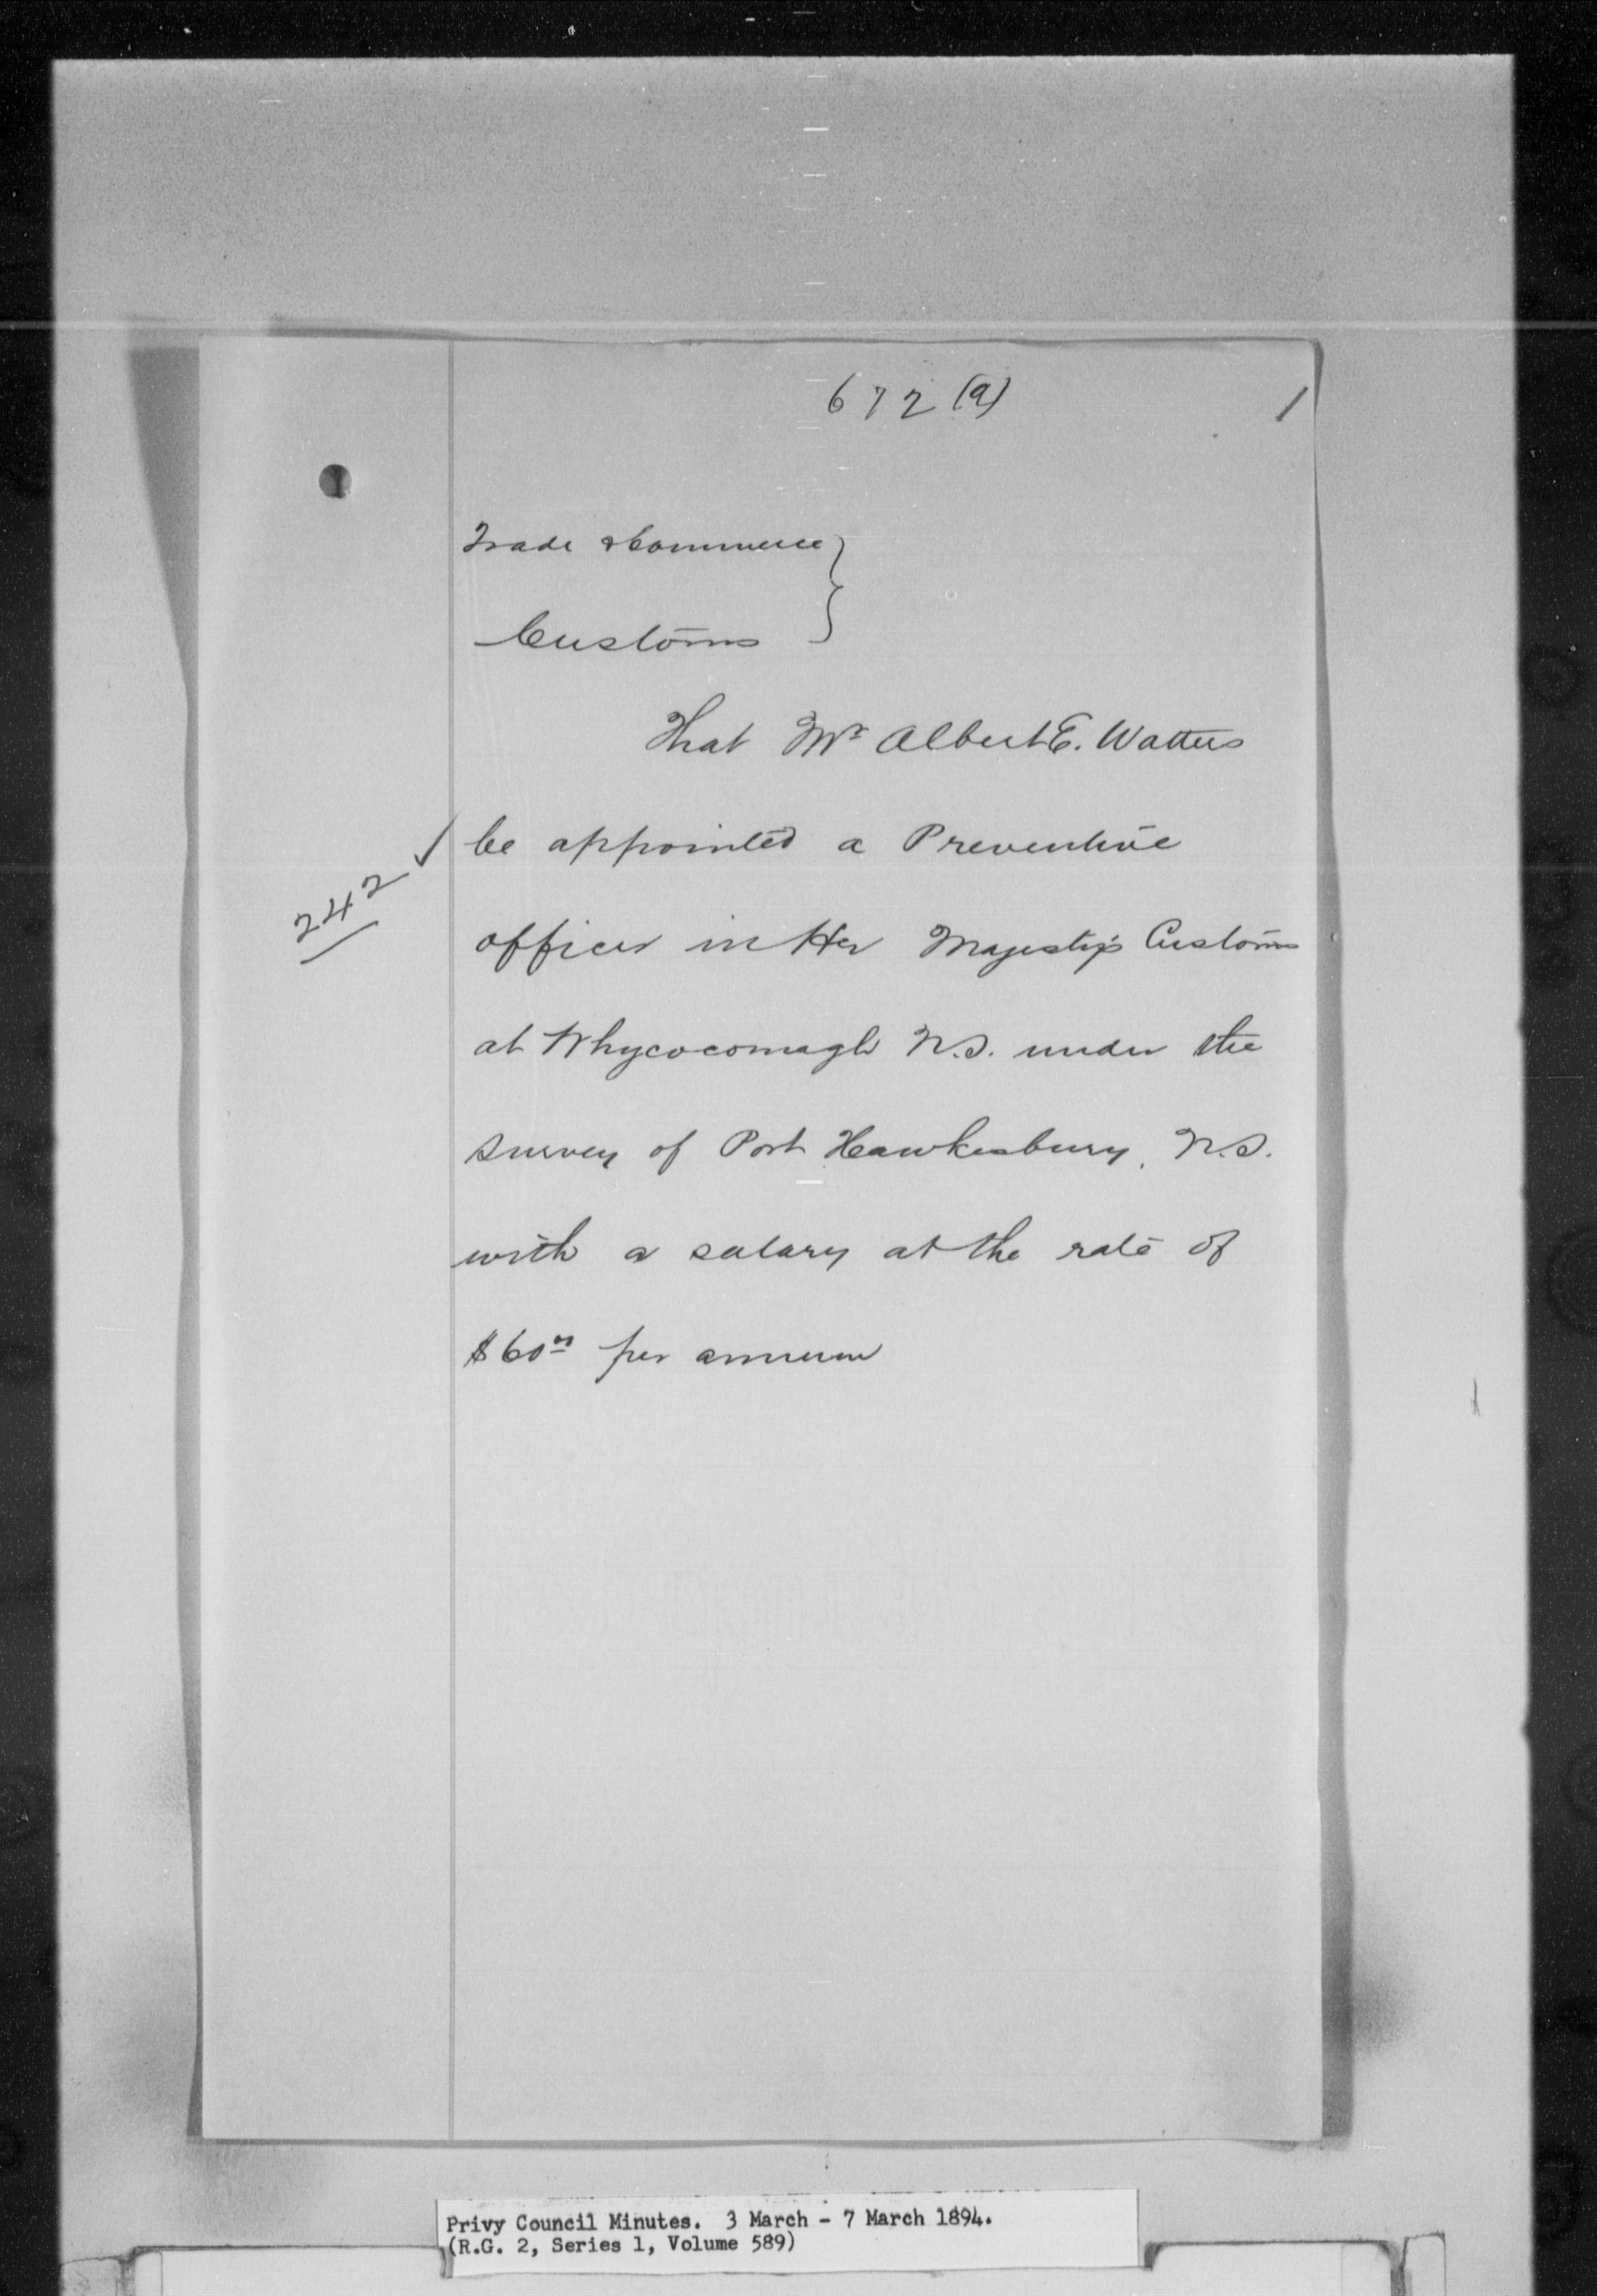 672 (a)
/
Trade & Commerce }
Customs }
That Mr Albert E. Watters
be appointed a Preventive
officer in Her Majesty's Customs
242
at Whycocomagh N.S. under the
survey of Port Hawkesbury, N.S.
with a salary at the rate of
$60.00 per annum
Privy Council Minutes. 3 March - 7 March 1894.
(R.G. 2, Series 1, Volume 589)